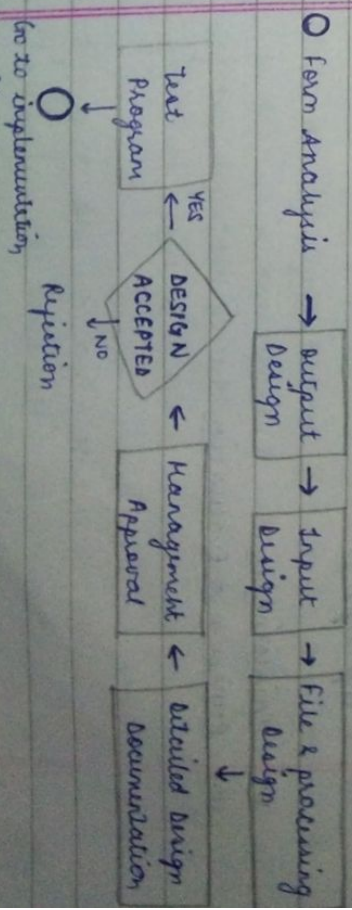 O Form Analysis → Output Design → Input Design → File & processing Design
↓
Detailed Design Documentation
← Management Approval
← DESIGN ACCEPTED
← YES
Test Program
↓ NO
Rejection
↓
O
Go to implementation